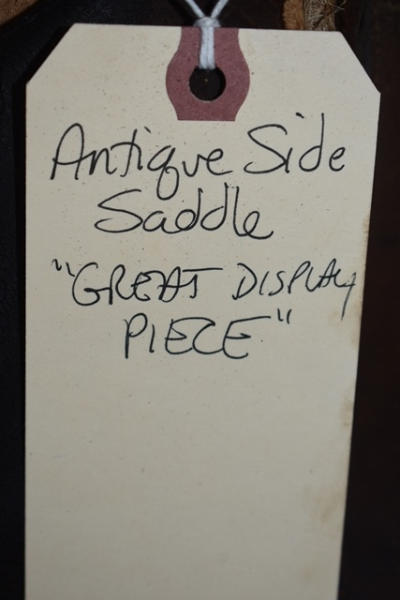 Antique Side
Saddle
"GREAT DISPLAY
PIECE"